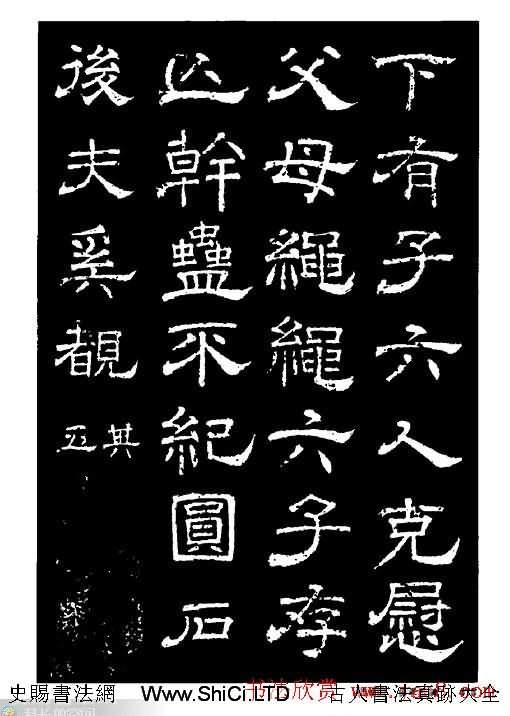 下有子六人克慰
父母繩繩六子存
亾幹蠱不紀圓石
後夫奚覩
其
五
史賜書法網 www.ShiCi.LTD 古人書法真跡大全
书法欣赏